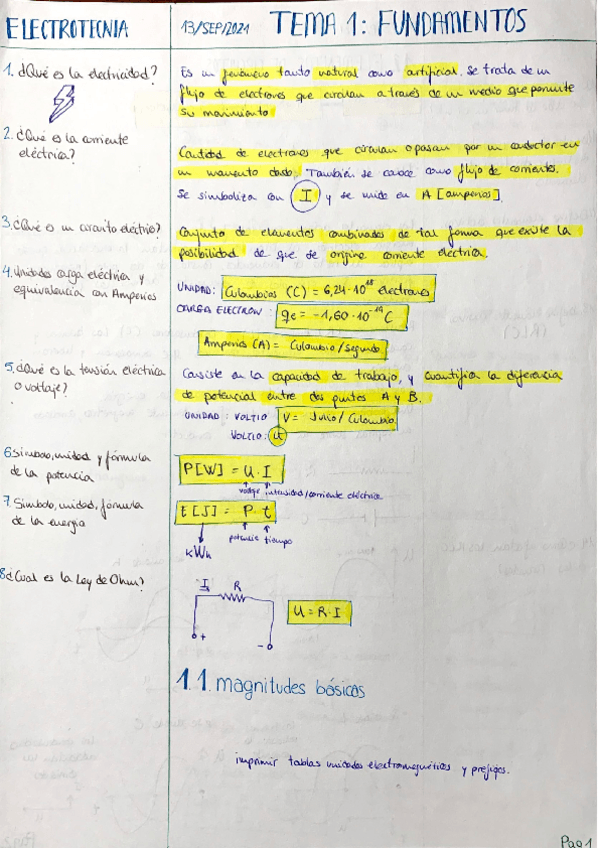 ELECTROTECNIA
13/SEP/2021
TEMA 1: FUNDAMENTOS
1. ¿Qué es la electricidad?
Es un fenómeno tanto natural como artificial. Se trata de un
flujo de electrones que circulan a través de un medio que permite
su movimiento
2. ¿Qué es la corriente
eléctrica?
Cantidad de electrones que circulan o pasan por un conductor en
un momento dado. También se conoce como flujo de corriente.
Se simboliza con I y se mide en A [amperios].
3. ¿Qué es un circuito eléctrico?
Conjunto de elementos combinados de tal forma que existe la
posibilidad de que se origine corriente eléctrica.
4. Unidades carga eléctrica y
equivalencia con Amperios
UNIDAD: Culombios (C) = 6,24·10¹⁸ electrones
CARGA ELECTRON: qe = -1,60·10⁻¹⁹ C
Amperios (A) = Culombio/segundo
5. ¿Qué es la tensión eléctrica
o voltaje?
Consiste en la capacidad de trabajo, y cuantifica la diferencia
de potencial entre dos puntos A y B.
UNIDAD: VOLTIO V = Julio/Culombio
VOLTIO: U
6. Símbolo, unidad y fórmula
de la potencia
P[W] = U·I
voltaje intensidad/corriente eléctrica
7. Símbolo, unidad, fórmula
de la energía
E[J] = P·t
potencia tiempo
kWh
8. ¿Cual es la Ley de Ohm?
I R
U = R·I
+ -
1.1. magnitudes básicas
imprimir tablas unidades electromagnéticas y prefijos.
Pag 1